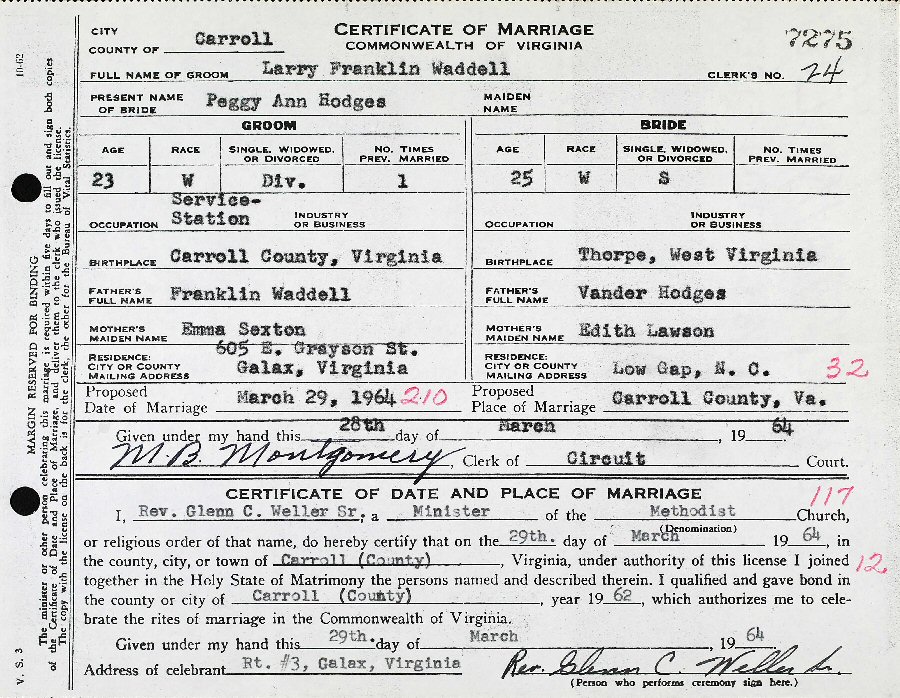 CITY
COUNTY OF Carroll
CERTIFICATE OF MARRIAGE
COMMONWEALTH OF VIRGINIA
7275
FULL NAME OF GROOM Larry Franklin Waddell
CLERK'S NO. 24
PRESENT NAME OF BRIDE Peggy Ann Hodges
MAIDEN NAME
GROOM
BRIDE
AGE RACE SINGLE, WIDOWED, OR DIVORCED NO. TIMES PREV. MARRIED
AGE RACE SINGLE, WIDOWED, OR DIVORCED NO. TIMES PREV. MARRIED
23 W Div. 1
25 W S
OCCUPATION Service-Station INDUSTRY OR BUSINESS
OCCUPATION INDUSTRY OR BUSINESS
BIRTHPLACE Carroll County, Virginia
BIRTHPLACE Thorpe, West Virginia
FATHER'S FULL NAME Franklin Waddell
FATHER'S FULL NAME Vander Hodges
MOTHER'S MAIDEN NAME Emma Sexton
MOTHER'S MAIDEN NAME Edith Lawson
RESIDENCE: CITY OR COUNTY MAILING ADDRESS 605 E. Grayson St. Galax, Virginia
RESIDENCE: CITY OR COUNTY MAILING ADDRESS Low Gap, N. C. 32
Proposed Date of Marriage March 29, 1964 210
Proposed Place of Marriage Carroll County, Va.
Given under my hand this 28th day of March, 19 64
M.B. Montgomery, Clerk of Circuit Court.
CERTIFICATE OF DATE AND PLACE OF MARRIAGE
117
I, Rev. Glenn C. Weller Sr, a Minister of the Methodist Church,
(Denomination)
or religious order of that name, do hereby certify that on the 29th. day of March 19 64, in
the county, city, or town of Carroll (County), Virginia, under authority of this license I joined 12
together in the Holy State of Matrimony the persons named and described therein. I qualified and gave bond in
the county or city of Carroll (County), year 19 62, which authorizes me to cele-
brate the rites of marriage in the Commonwealth of Virginia.
Given under my hand this 29th. day of March, 19 64
Address of celebrant Rt. #3, Galax, Virginia Rev. Glenn C. Weller Sr.
(Person who performs ceremony sign here.)
V. S. 3
10-62
MARGIN RESERVED FOR BINDING
The minister or other person celebrating this marriage is required within five days to fill out and sign both copies
of the Certificate of Date and Place of Marriage, and deliver them to the clerk who issued the license.
The copy with the license on the back is for the clerk, the other for the Bureau of Vital Statistics.